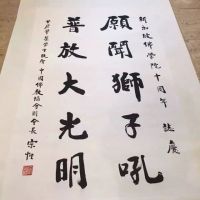 新加坡佛學院十周年 誌慶
願聞獅子吼
普放大光明
中國佛教協會副會長 宗性